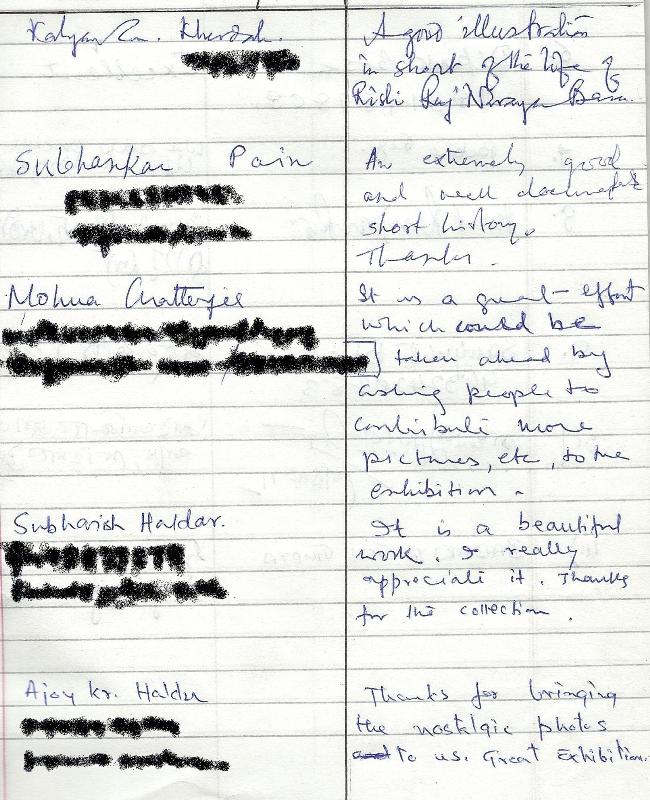 A good illustration
in short of the life of
Rishi Raj Narayan Basu.
Subhankar Pain
An extremely good
and well documented
short history.
Thanks.
Mohua Chatterjee
It is a great effort
which could be
taken ahead by
asking people to
contribute more
pictures, etc, to the
exhibition.
Subhasish Haldar.
It is a beautiful
work. I really
appreciate it. Thanks
for the collection.
Ajoy Kr. Halder
Thanks for bringing
the nostalgic photos
to us. Great Exhibition.